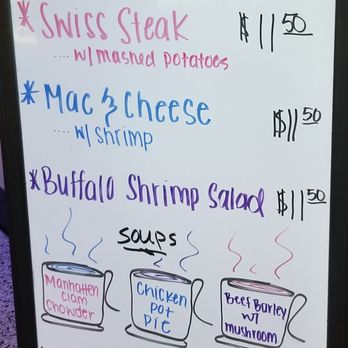 * Swiss Steak $11 50
.... w/ mashed potatoes
* Mac & Cheese $11 50
.... w/ shrimp
* Buffalo Shrimp Salad $11 50
Soups
Manhatten
Clam
Chowder
Chicken
Pot
Pie
Beef Barley
w/
mushroom